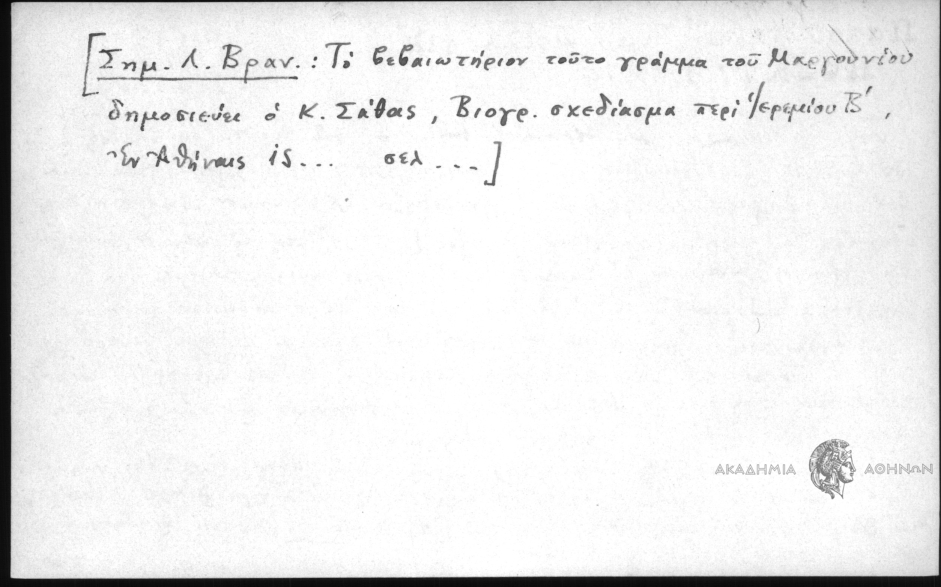 [Σημ. Λ. Βραν.: Τὸ βεβαιωτήριον τοῦτο γράμμα τοῦ Μαργουνίου
δημοσιεύει ὁ Κ. Σάθας, Βιογρ. σχεδίασμα περὶ Ἱερεμίου Β΄,
Ἐν Ἀθήναις 18... σελ ...]
ΑΚΑΔΗΜΙΑ ΑΘΗΝΩΝ